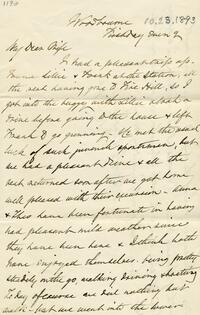 1190
Woodbourne 10.28.1893
Firstday Even'g
My Dear Wife
I had a pleasant trip up.
Emma Lillie & Frank at the station, all
the rest having gone to Fox Hill, so I
got into the buggy with Allie & took a
drive before going to the house & left
Frank to go gunning. We met the usual
luck of such juvenile sportsmen, but
we had a pleasant drive & all the
rest returned soon after we got home
well pleased with their excursion. Anna
& Theo have been fortunate in having
had pleasant mild weather since
they have been here & I think both
have enjoyed themselves. being pretty
steadily on the go, walking driving & boating
to day of course we had nothing but
walk but we went into the